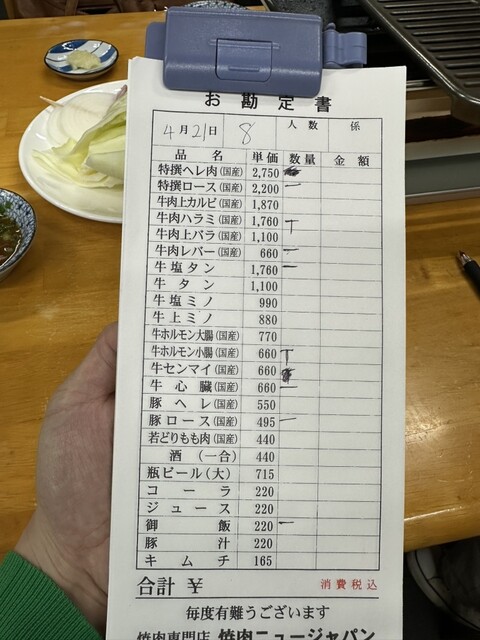 お勘定書
4月21日 8 人数 係
品名 単価 数量 金額
特撰ヘレ肉(国産) 2,750
特撰ロース(国産) 2,200 一
牛肉上カルビ(国産) 1,870
牛肉ハラミ(国産) 1,760 T
牛肉上バラ(国産) 1,100
牛肉レバー(国産) 660 一
牛塩タン 1,760 一
牛タン 1,100
牛塩ミノ 990
牛上ミノ 880
牛ホルモン大腸(国産) 770
牛ホルモン小腸(国産) 660 T
牛センマイ(国産) 660
牛心臓(国産) 660 一
豚ヘレ(国産) 550
豚ロース(国産) 495 一
若どりもも肉(国産) 440
酒(一合) 440
瓶ビール(大) 715
コーラ 220
ジュース 220
御飯 220 一
豚汁 220
キムチ 165
合計 ¥ 消費税込
毎度有難うございます
焼肉専門店 焼肉ニュージャパン